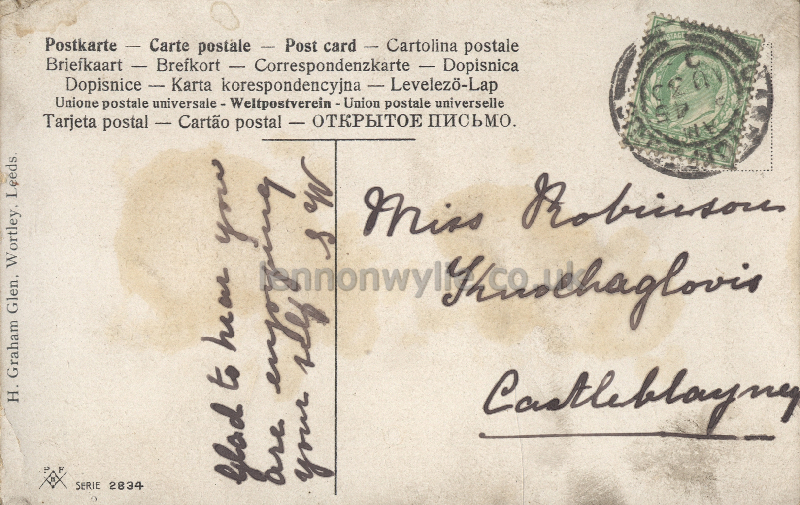 Postkarte — Carte postale — Post card — Cartolina postale
Briefkaart — Brefkort — Correspondenzkarte — Dopisnica
Dopisnice — Karta korespondencyjna — Levelező-Lap
Unione postale universale - Weltpostverein - Union postale universelle
Tarjeta postal — Cartão postal — ОТКРЫТОЕ ПИСЬМО.
H. Graham Glen, Wortley, Leeds.
Glad to hear you
are enjoying
your self S W
Miss Robinson
Knochaglovis
Castleblayney
lennonwylie.co.uk
P F
B
SERIE 2834